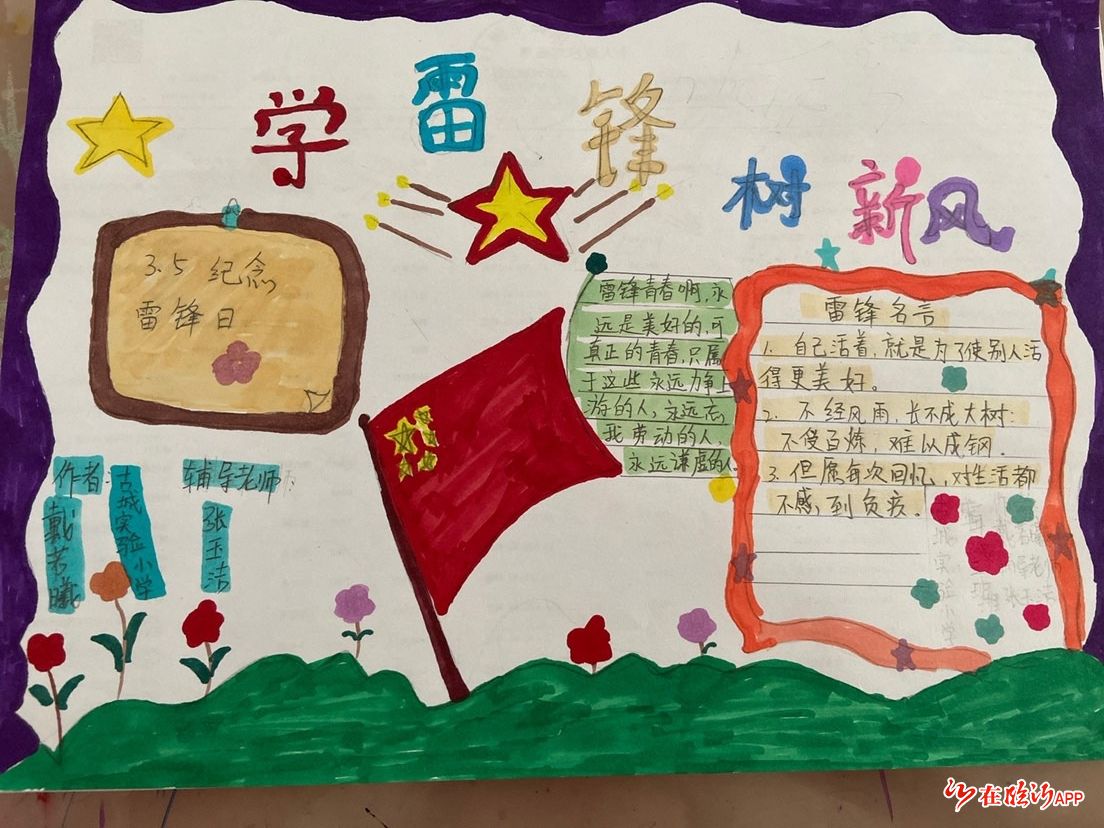 学雷锋
树新风
3.5 纪念
雷锋日
雷锋青春啊,永
远是美好的,可
真正的青春,只属
于这些永远力争上
游的人,永远忘
我劳动的人
永远谦虚的人.
雷锋名言
1. 自己活着,就是为了使别人活
得更美好。
2. 不经风雨,长不成大树:
不受百炼,难以成钢.
3. 但愿每次回忆,对生活都
不感到负疚。
作者:
古城实验小学
戴若曦
辅导老师:
张玉洁
在临沂APP